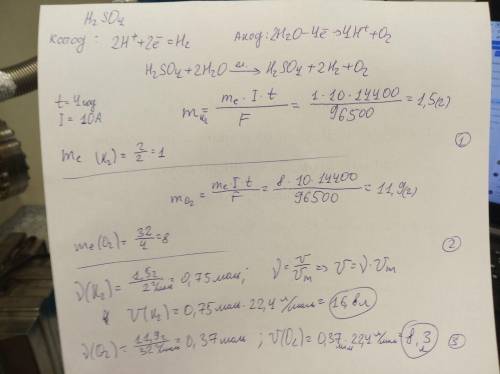 H₂SO₄
Катод: 2H⁺+2ē=H₂ Анод: 2H₂O-4ē→4H⁺+O₂
H₂SO₄+2H₂O эл.→ H₂SO₄+2H₂+O₂
t=4час
I=10A
m H₂ = mэ·I·t / F = 1·10·14400 / 96500 = 1,5(г)
①
mэ (H₂)= 2/2 =1
m O₂ = mэ I t / F = 8·10·14400 / 96500 = 11,9(г)
mэ(O₂)= 32/4 =8
②
ν(H₂)= 1,5г / 2г/моль = 0,75 моль; ν= V/Vm => V=ν·Vm
V(H₂)= 0,75моль·22,4 л/моль= 16,8л
ν(O₂)= 11,9г / 32г/моль = 0,37моль; V(O₂)= 0,37моль·22,4 л/моль= 8,3л
③